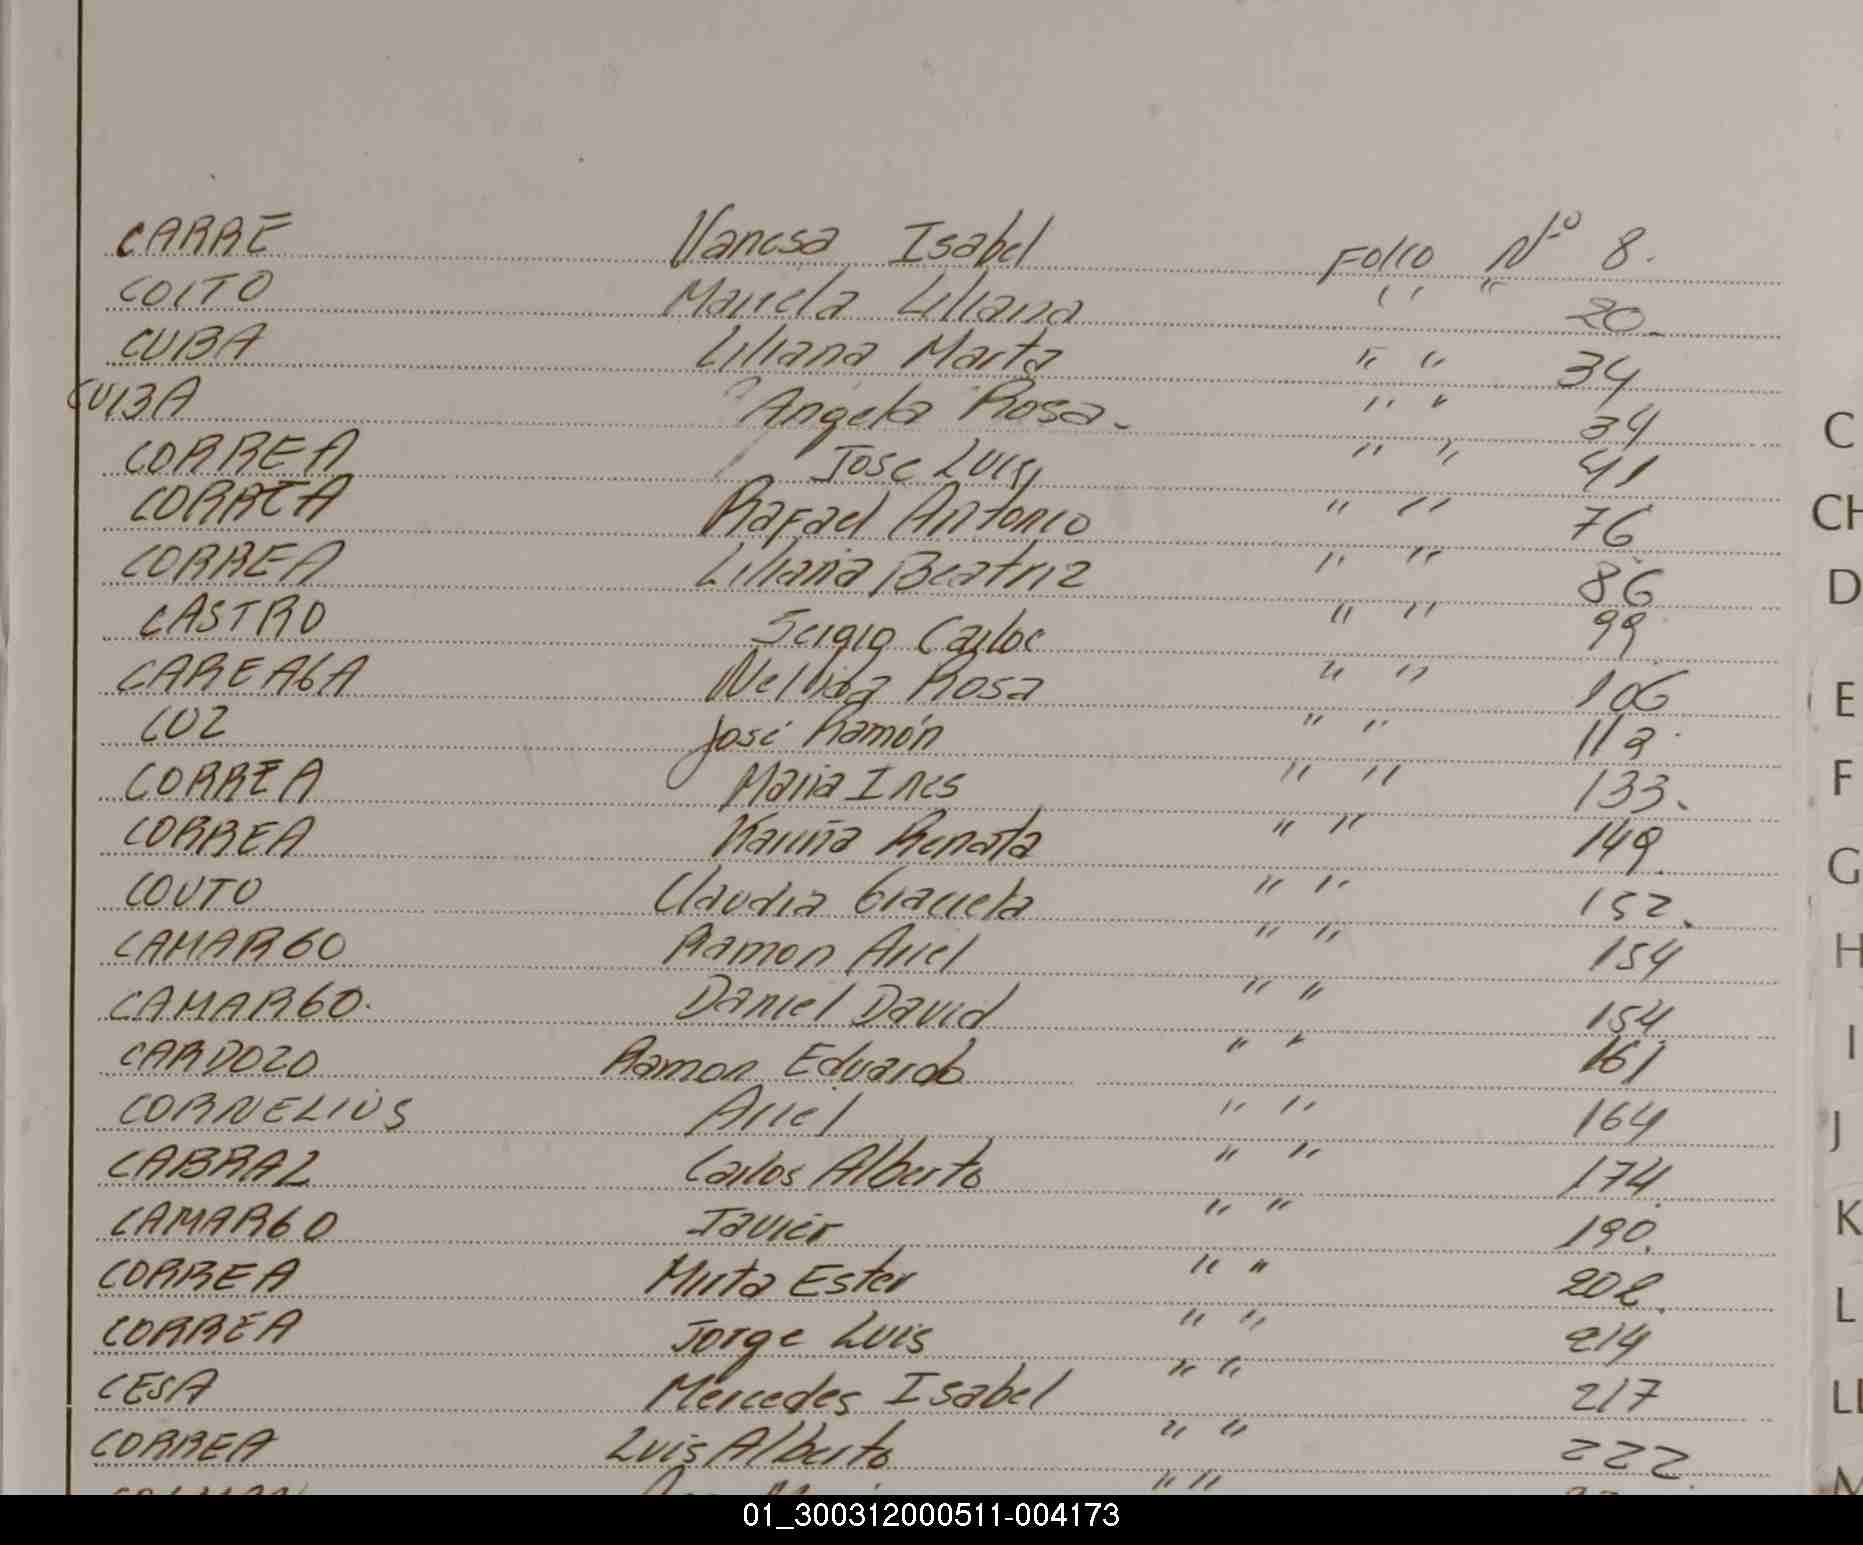 CARRE Vanesa Isabel Folio Nº 8.
COITO Mariela Liliana " " 20.
CUBA Liliana Marta " " 34
CUBA Angela Rosa. " " 34
CORREA Jose Luis " " 41
CORREA Rafael Antonio " " 76
CORREA Liliana Beatriz " " 86
CASTRO Sergio Carlos " " 99
CAREAGA Nelida Rosa " " 106
CUZ José Ramón " " 112
CORREA Maria Ines " " 133.
CORREA Karina Renata " " 149.
COUTO Claudia Graciela " " 152.
CAMARGO Ramon Ariel " " 154
CAMARGO. Daniel David " " 154.
CARDOZO Ramon Eduardo " " 161
CORNELIUS Ariel " " 164
CABRAL Carlos Alberto " " 174.
CAMARGO Javier " " 190.
CORREA Mirta Ester " " 202.
CORREA Jorge Luis " " 214
CESA Mercedes Isabel " " 217
CORREA Luis Alberto " " 222
" "
C
CH
D
E
F
G
H
I
J
K
L
LL
M
01_300312000511-004173